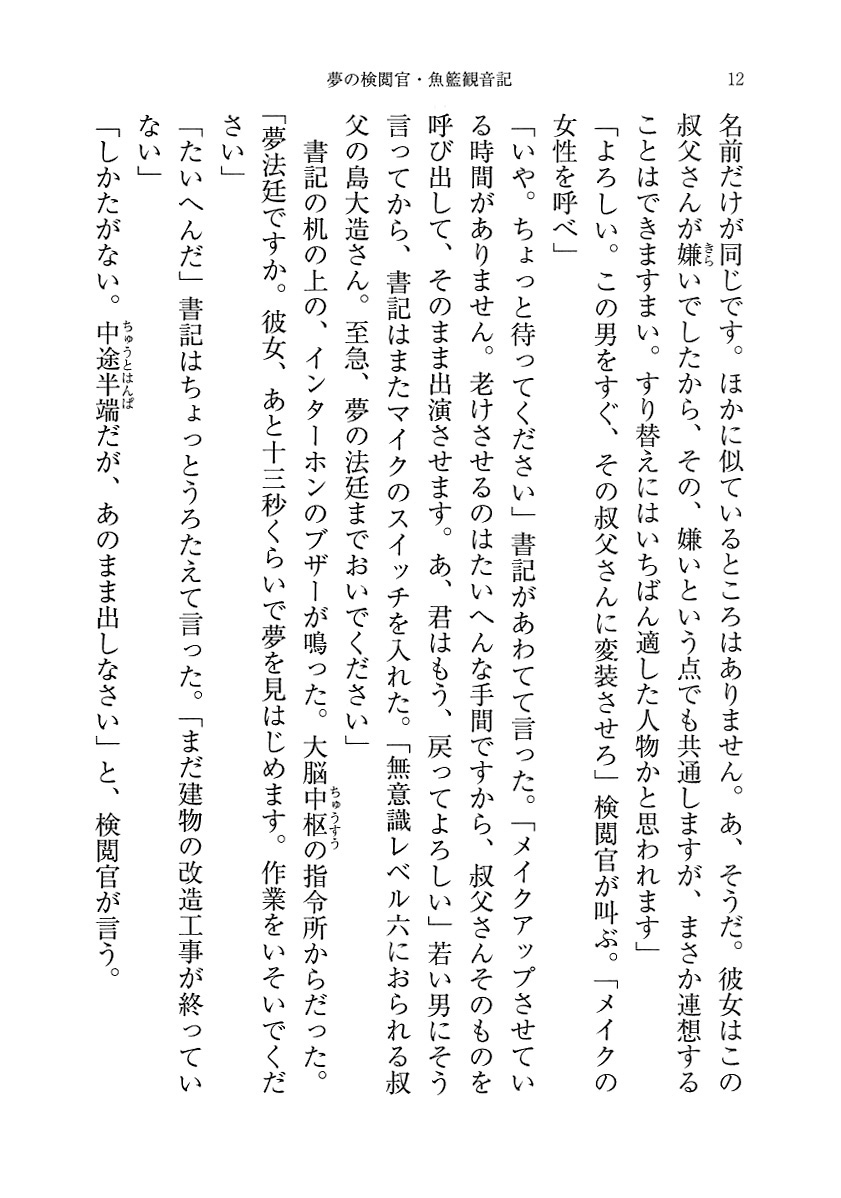 夢の検閲官・魚籃観音記
12
名前だけが同じです。ほかに似ているところはありません。あ、そうだ。彼女はこの
叔父さんが嫌いでしたから、その、嫌いという点でも共通しますが、まさか連想する
きら
ことはできますまい。すり替えにはいちばん適した人物かと思われます」
「よろしい。この男をすぐ、その叔父さんに変装させろ」検閲官が叫ぶ。「メイクの
女性を呼べ」
「いや。ちょっと待ってください」書記があわてて言った。「メイクアップさせてい
る時間がありません。老けさせるのはたいへんな手間ですから、叔父さんそのものを
呼び出して、そのまま出演させます。あ、君はもう、戻ってよろしい」若い男にそう
言ってから、書記はまたマイクのスイッチを入れた。「無意識レベル六におられる叔
父の島大造さん。至急、夢の法廷までおいでください」
書記の机の上の、インターホンのブザーが鳴った。大脳中枢の指令所からだった。
ちゅうすう
「夢法廷ですか。彼女、あと十三秒くらいで夢を見はじめます。作業をいそいでくだ
さい」
「たいへんだ」書記はちょっとうろたえて言った。「まだ建物の改造工事が終ってい
ない」
「しかたがない。中途半端だが、あのまま出しなさい」と、検閲官が言う。
ちゅうとはんぱ